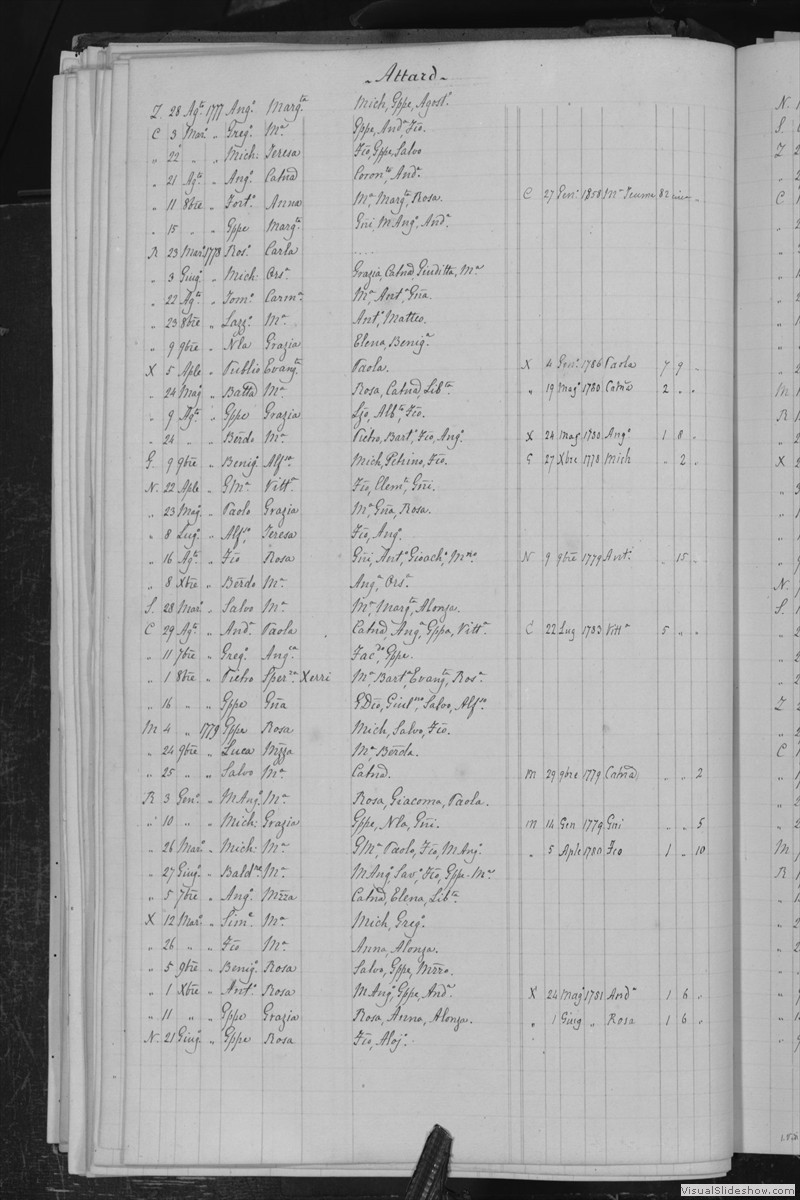 Attard
Z. 28 Agto 1777 Ango Margta Mich, Gppe, Agosto.
C 3 Maro „ Grego Ma Gppe, Anda Fco.
„ 22 „ „ Mich: Teresa Fco, Gppe, Salvo
„ 21 Agto „ Ango Catnd Coronta, Anda.
„ 11 8bre „ Forto Anna Ma, Margta, Rosa. C 27 Geno 1858 Ma 82
„ 15 „ „ Gppe Margta Gñi, M Ango, Anda.
R 23 Maro 1778 Roso Carla ....
„ 3 Giugo „ Mich: Orsa Grazia, Catnd, Giuditta, Ma
„ 22 Agto „ Tomo Carma Ma, Anta Gña.
„ 23 8bre „ Lazzo Ma Anto, Matteo.
„ 9 9bre „ Nla Grazia Elena, Beniga.
X 5 Aple „ Publio Evangta Paola. X 4 Geno 1786 Paola 7 9 „
„ 24 Mago „ Batta Ma Rosa, Catnd, Libta. „ 19 Mago 1780 Catña 2 „ „
„ 9 Agto „ Gppe Grazia Ljo, Albto, Fco.
„ 24 „ „ Berdo Ma Pietro, Barto, Fco, Ango. X 24 Mag 1780 Ango 1 8 „
G. 9 9bre „ Benigo Alfna Mich, Petrino, Fco. G 27 Xbre 1778 Mich „ 2 „
N. 22 Aple „ GMa Vitta Fco, Clemte, Gñi.
„ 23 Mago „ Paolo Grazia Ma, Gña, Rosa.
„ 8 Lugo „ Alfso Teresa Fco, Ango.
„ 16 Agto „ Fco Rosa Gñi, Anto, Gioacho, N 9 9bre 1779 Anto. „ 15 „
„ 8 Xbre „ Berdo Ma Anga, Orsa.
S. 28 Maro „ Salvo Ma Ma, Margta, Alonza.
C 29 Agto „ Anda Paola Catnd, Anga, Gppa, Vitta C 22 Lug 1783 Vitta 5 „ „
„ 11 7bre „ Grego Angca Facdo, Gppe.
„ 1 8bre „ Pietro Sperza Xerri Ma, Barta, Evangta, Rosa.
„ 16 „ „ Gppe Gña GDco, Giulno, Salvo, Alfso.
M 4 „ 1779 Gppe Rosa Mich, Salvo, Fco.
„ 24 9bre „ Luca Mzza Ma, Berda.
„ 25 „ „ Salvo Ma Catnd. M 29 9bre 1779 Catña „ „ 2
R 3 Geno „ M Ango Ma Rosa, Giacoma, Paola.
„ 10 „ „ Mich: Grazia Gppe, Nla, Gñi. M 14 Gen 1779 Gni „ „ 5
„ 26 Maro „ Mich: Ma GMa, Paolo, Fco, M Ango. „ 5 Aple 1780 Fco 1 „ 10
„ 27 Giugo „ Baldre Ma M Ango, Savo, Fco, Gppe-Ma
„ 5 7bre „ Ango Mzza Catnd, Elena, Libta.
X 12 Maro „ Sime Ma Mich, Grego.
„ 26 „ „ Fco Ma Anna, Alonza.
„ 5 9bre „ Benigo Rosa Salvo, Gppe, Mzzo.
„ 1 Xbre „ Anto Rosa M Ango, Gppe, Anda. X 24 Mago 1781 Anda 1 6 „
„ 11 „ „ Gppe Grazia Rosa, Anna, Alonza. „ 1 Giug „ Rosa 1 6 „
N. 21 Giugo „ Gppe Rosa Fco, Aloj.
VisualSlideshow.com